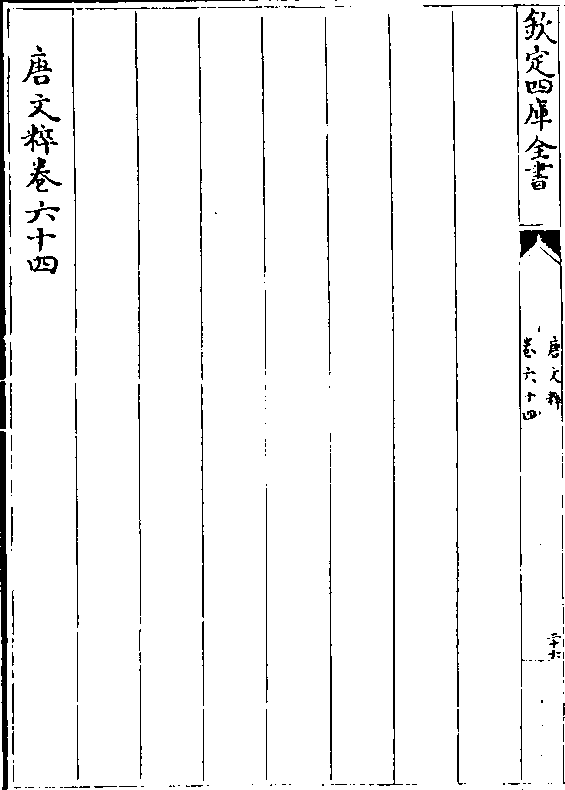 欽定四庫全書
唐文粹
卷六十四
二十六
唐文粹卷六十四